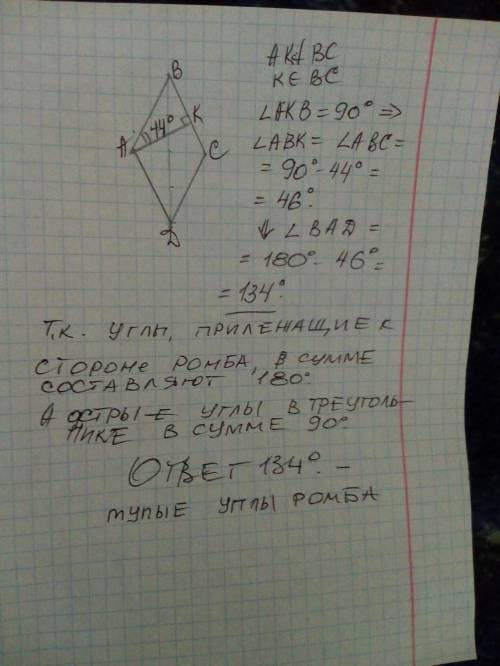 B
44°
K
A
C
D
AK⊥BC
K∈BC
∠AKB = 90° ⇒
∠ABK = ∠ABC =
= 90° - 44° =
= 46°.
↓ ∠BAD =
= 180° - 46° =
= 134°.
Т.к. углы, прилежащие к
стороне ромба, в сумме
составляют 180°.
А острые углы в треуголь-
нике в сумме 90°.
Ответ 134°. –
тупые углы ромба